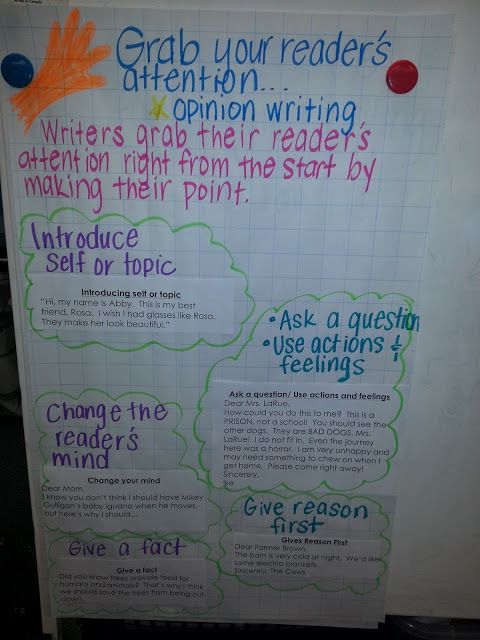 Grab your reader's
attention...
opinion writing
Writers grab their reader's
attention right from the start by
making their point.
Introduce
self or topic
Introducing self or topic
"Hi, my name is Abby. This is my best
friend, Rosa. I wish I had glasses like Rosa.
They make her look beautiful."
• Ask a question
• Use actions &
feelings
Ask a question/ Use actions and feelings
Dear Mrs. LaRue,
How could you do this to me? This is a
PRISON, not a school! You should see the
other dogs. They are BAD DOGS, Mrs.
LaRue! I do not fit in. Even the journey
here was a horror. I am very unhappy and
may need something to chew on when I
get home. Please come right away!
Sincerely,
Ike
Change the
reader's
mind
Change your mind
Dear Mom,
I know you don't think I should have Mikey
Gulligan's baby iguana when he moves,
but here's why I should...
Give reason
first
Gives Reason First
Dear Farmer Brown,
The barn is very cold at night. We'd like
some electric blankets.
Sincerely, The Cows
Give a fact
Give a fact
Did you know trees provide food for
humans and animals? That's why I think
we should save the trees from being cut
down.